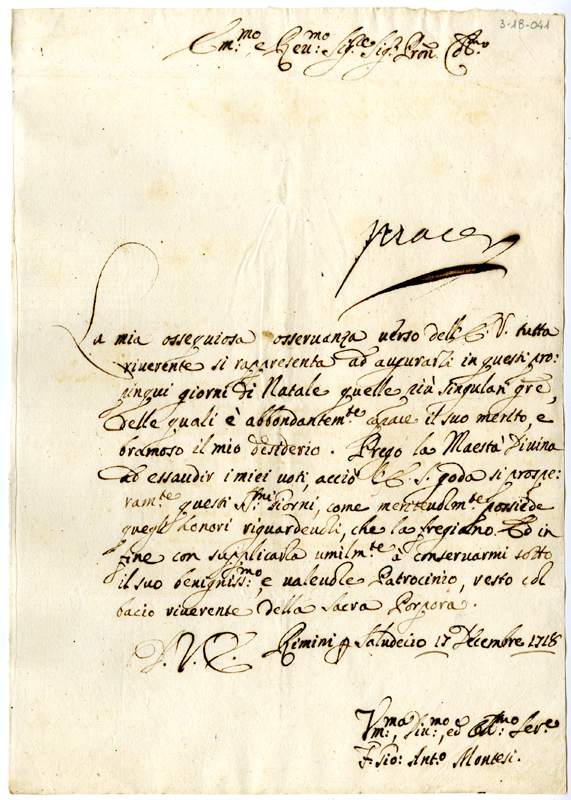 3-18-041
Em:mo e Reu:mo Sig.re Sig.r Pron Col.mo
La mia ossequiosa osseruanza uerso dell' E. V. tutta
riuerente si rappresenta ad augurarli in questi pro:
pinqui giorni di Natale quelle più singulari gre,
delle quali è abbondantem.te capace il suo merito, e
bramoso il mio desiderio. Prego la Maestà Diuina
ad essaudir i miei uoti, acciò l'E. S. goda si prospe:
ram.te questi S.mi Giorni, come meriteuolm.te possiede
quegl' honori riguardeuoli, che la fregiano. Ed in
fine con supplicarla umilm.te à conseruarmi sotto
il suo beniguiss:mo, e ualeuole Patrocinio, resto col
bacio riuerente della Sacra Porpora.
D. V. E. Rimini p Saludecio 17 Decembre 1718
Um:ma, Diu:mo, ed Obl:mo Ser.e
F. Gio: Ant.o Montesi.